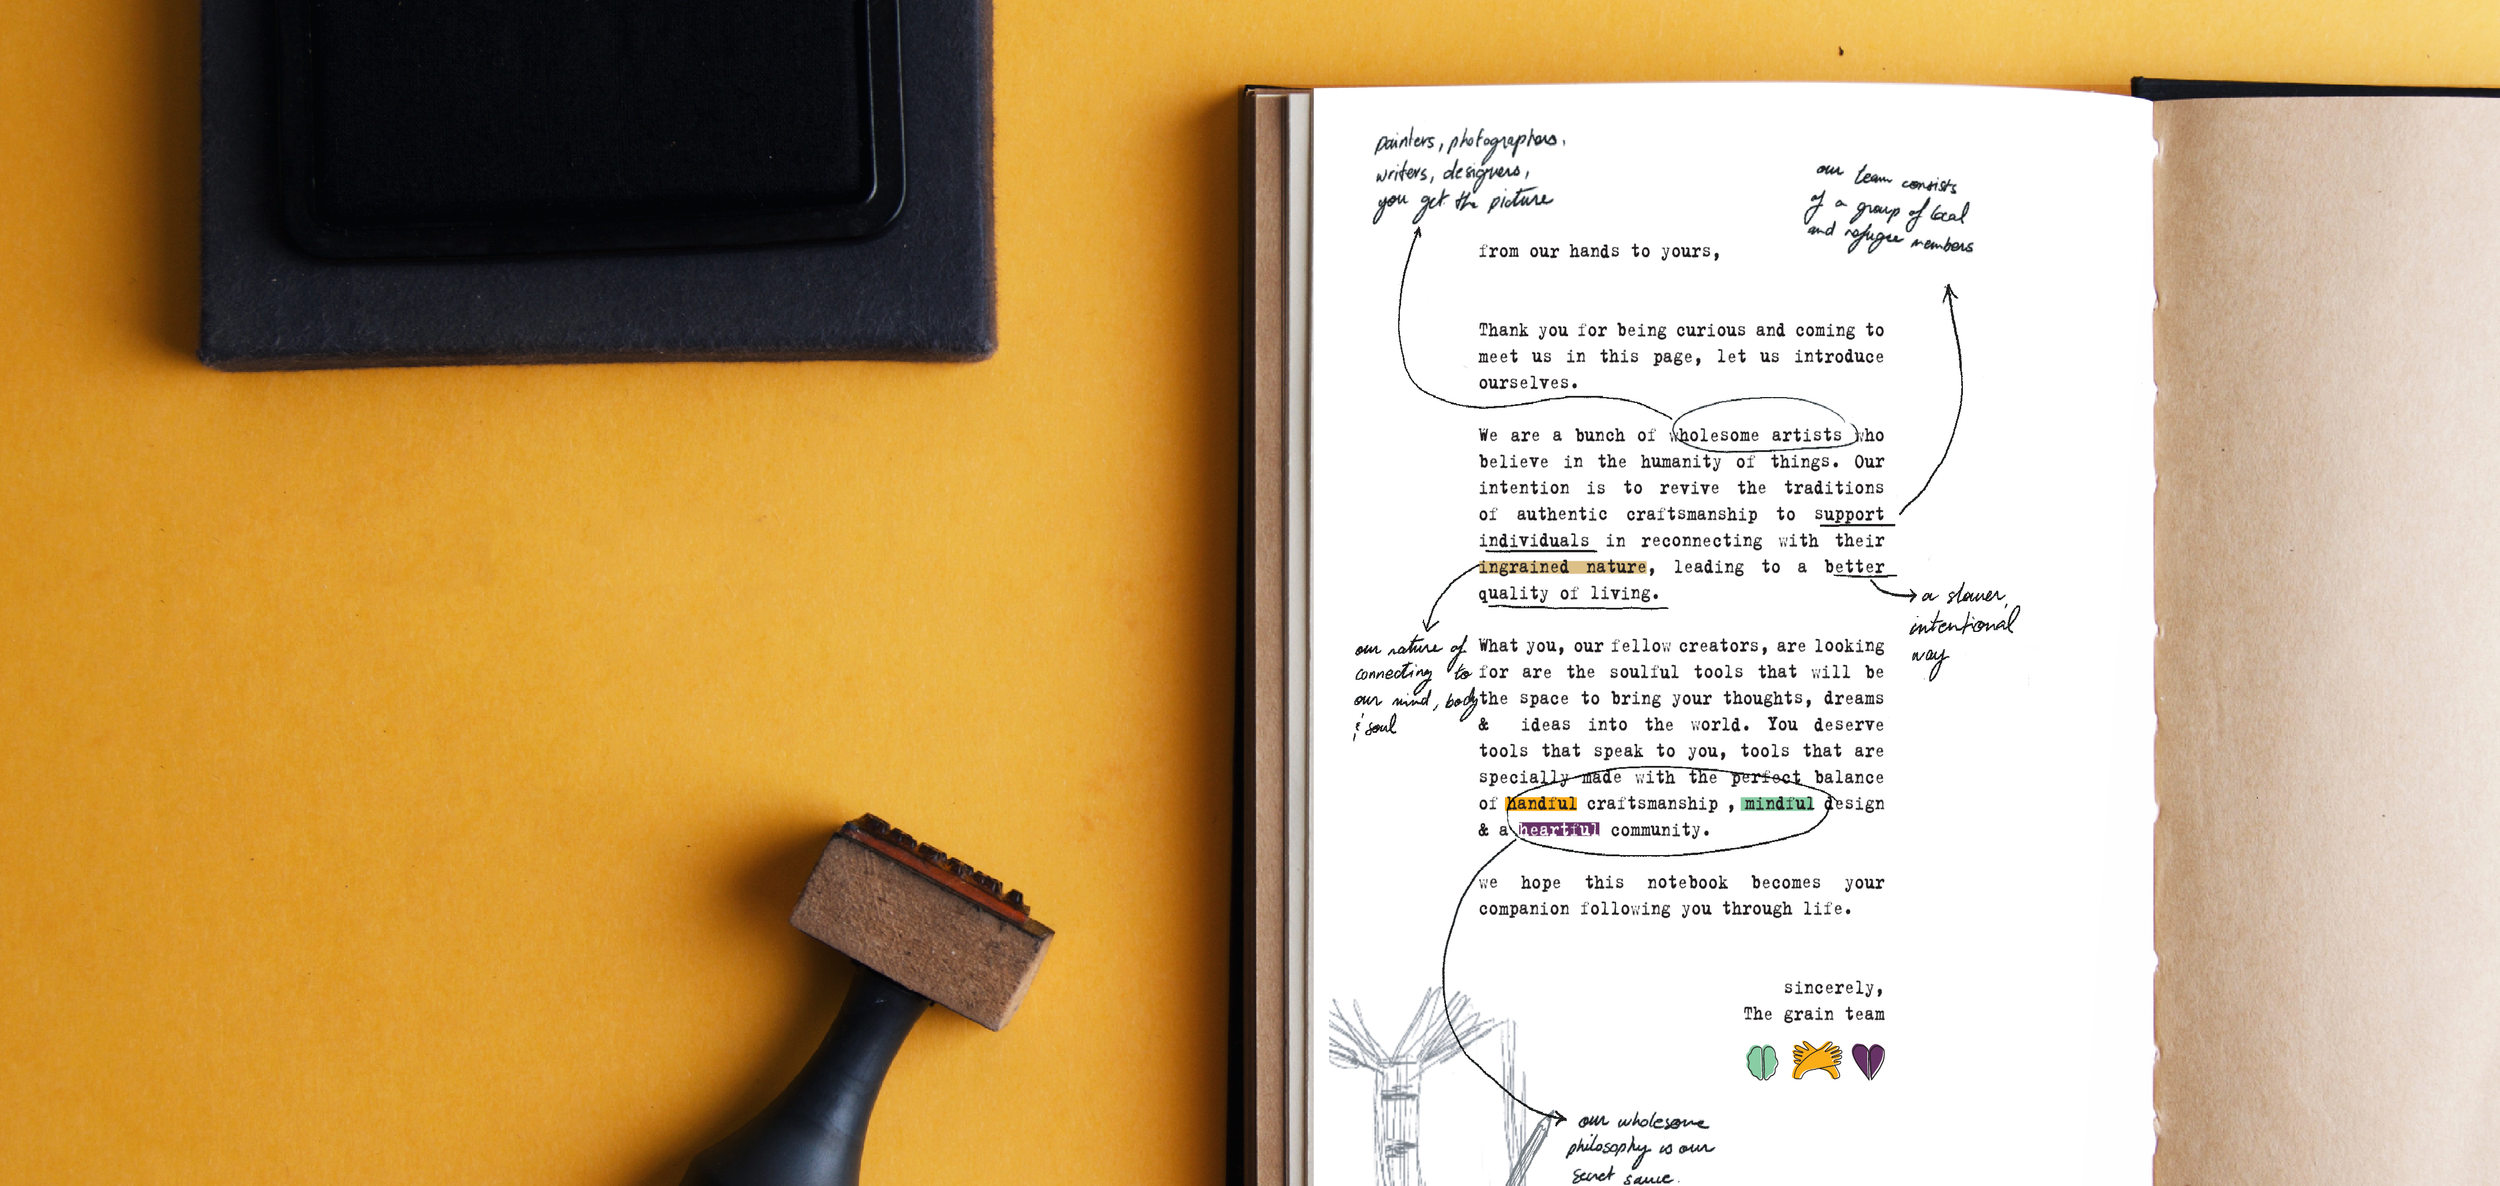 painters, photographers,
writers, designers,
you get the picture
our team consists
of a group of local
and refugee members
from our hands to yours,
Thank you for being curious and coming to
meet us in this page, let us introduce
ourselves.
We are a bunch of wholesome artists who
believe in the humanity of things. Our
intention is to revive the traditions
of authentic craftsmanship to support
individuals in reconnecting with their
ingrained nature, leading to a better
quality of living.
a slower,
intentional
way
our nature of
connecting to
our mind, body
& soul
What you, our fellow creators, are looking
for are the soulful tools that will be
the space to bring your thoughts, dreams
& ideas into the world. You deserve
tools that speak to you, tools that are
specially made with the perfect balance
of handful craftsmanship , mindful design
& a heartful community.
we hope this notebook becomes your
companion following you through life.
sincerely,
The grain team
our wholesome
philosophy is our
secret sauce.